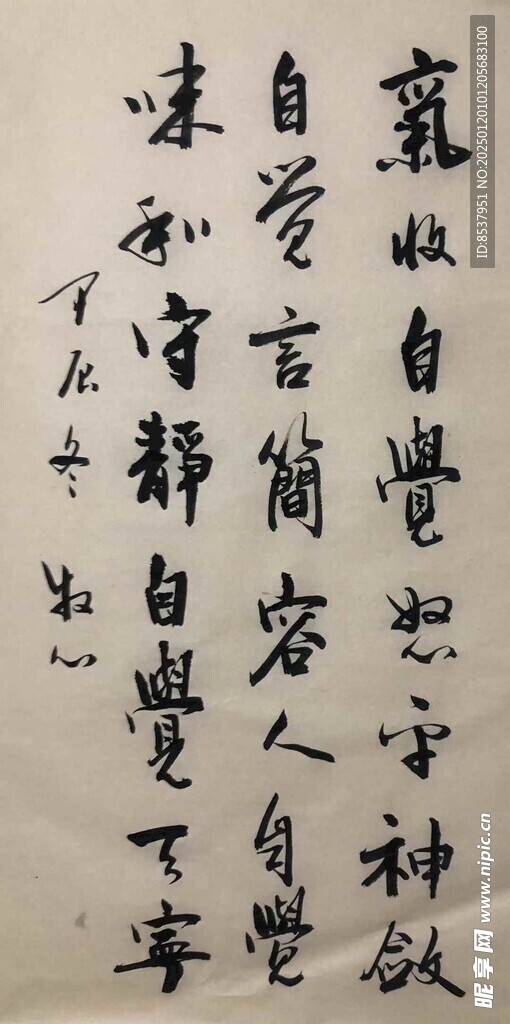 氣收自覺怒平神斂
自觉言簡容人自覺
味和守靜自覺天寧
甲辰冬 牧心
ID:8537951 NO:20250120101205683100
昵享网 www.nipic.cn